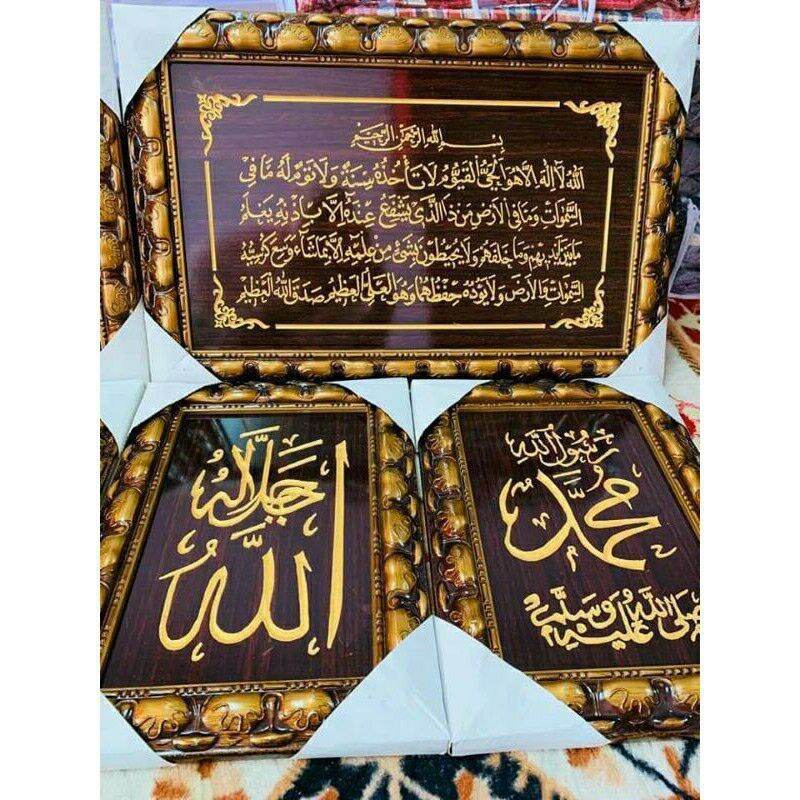 بسم الله الرحمن الرحيم
الله لا اله الا هو الحي القيوم لا تأخذه سنة ولا نوم له ما في
السموات وما في الارض من ذا الذي يشفع عنده الا باذنه يعلم
ما بين ايديهم وما خلفهم ولا يحيطون بشئ من علمه الا بما شاء وسع كرسيه
السموات والارض ولا يؤده حفظهما وهو العلي العظيم صدق الله العظيم
الله
جل جلاله
محمد
رسول الله
صلى الله عليه وسلم